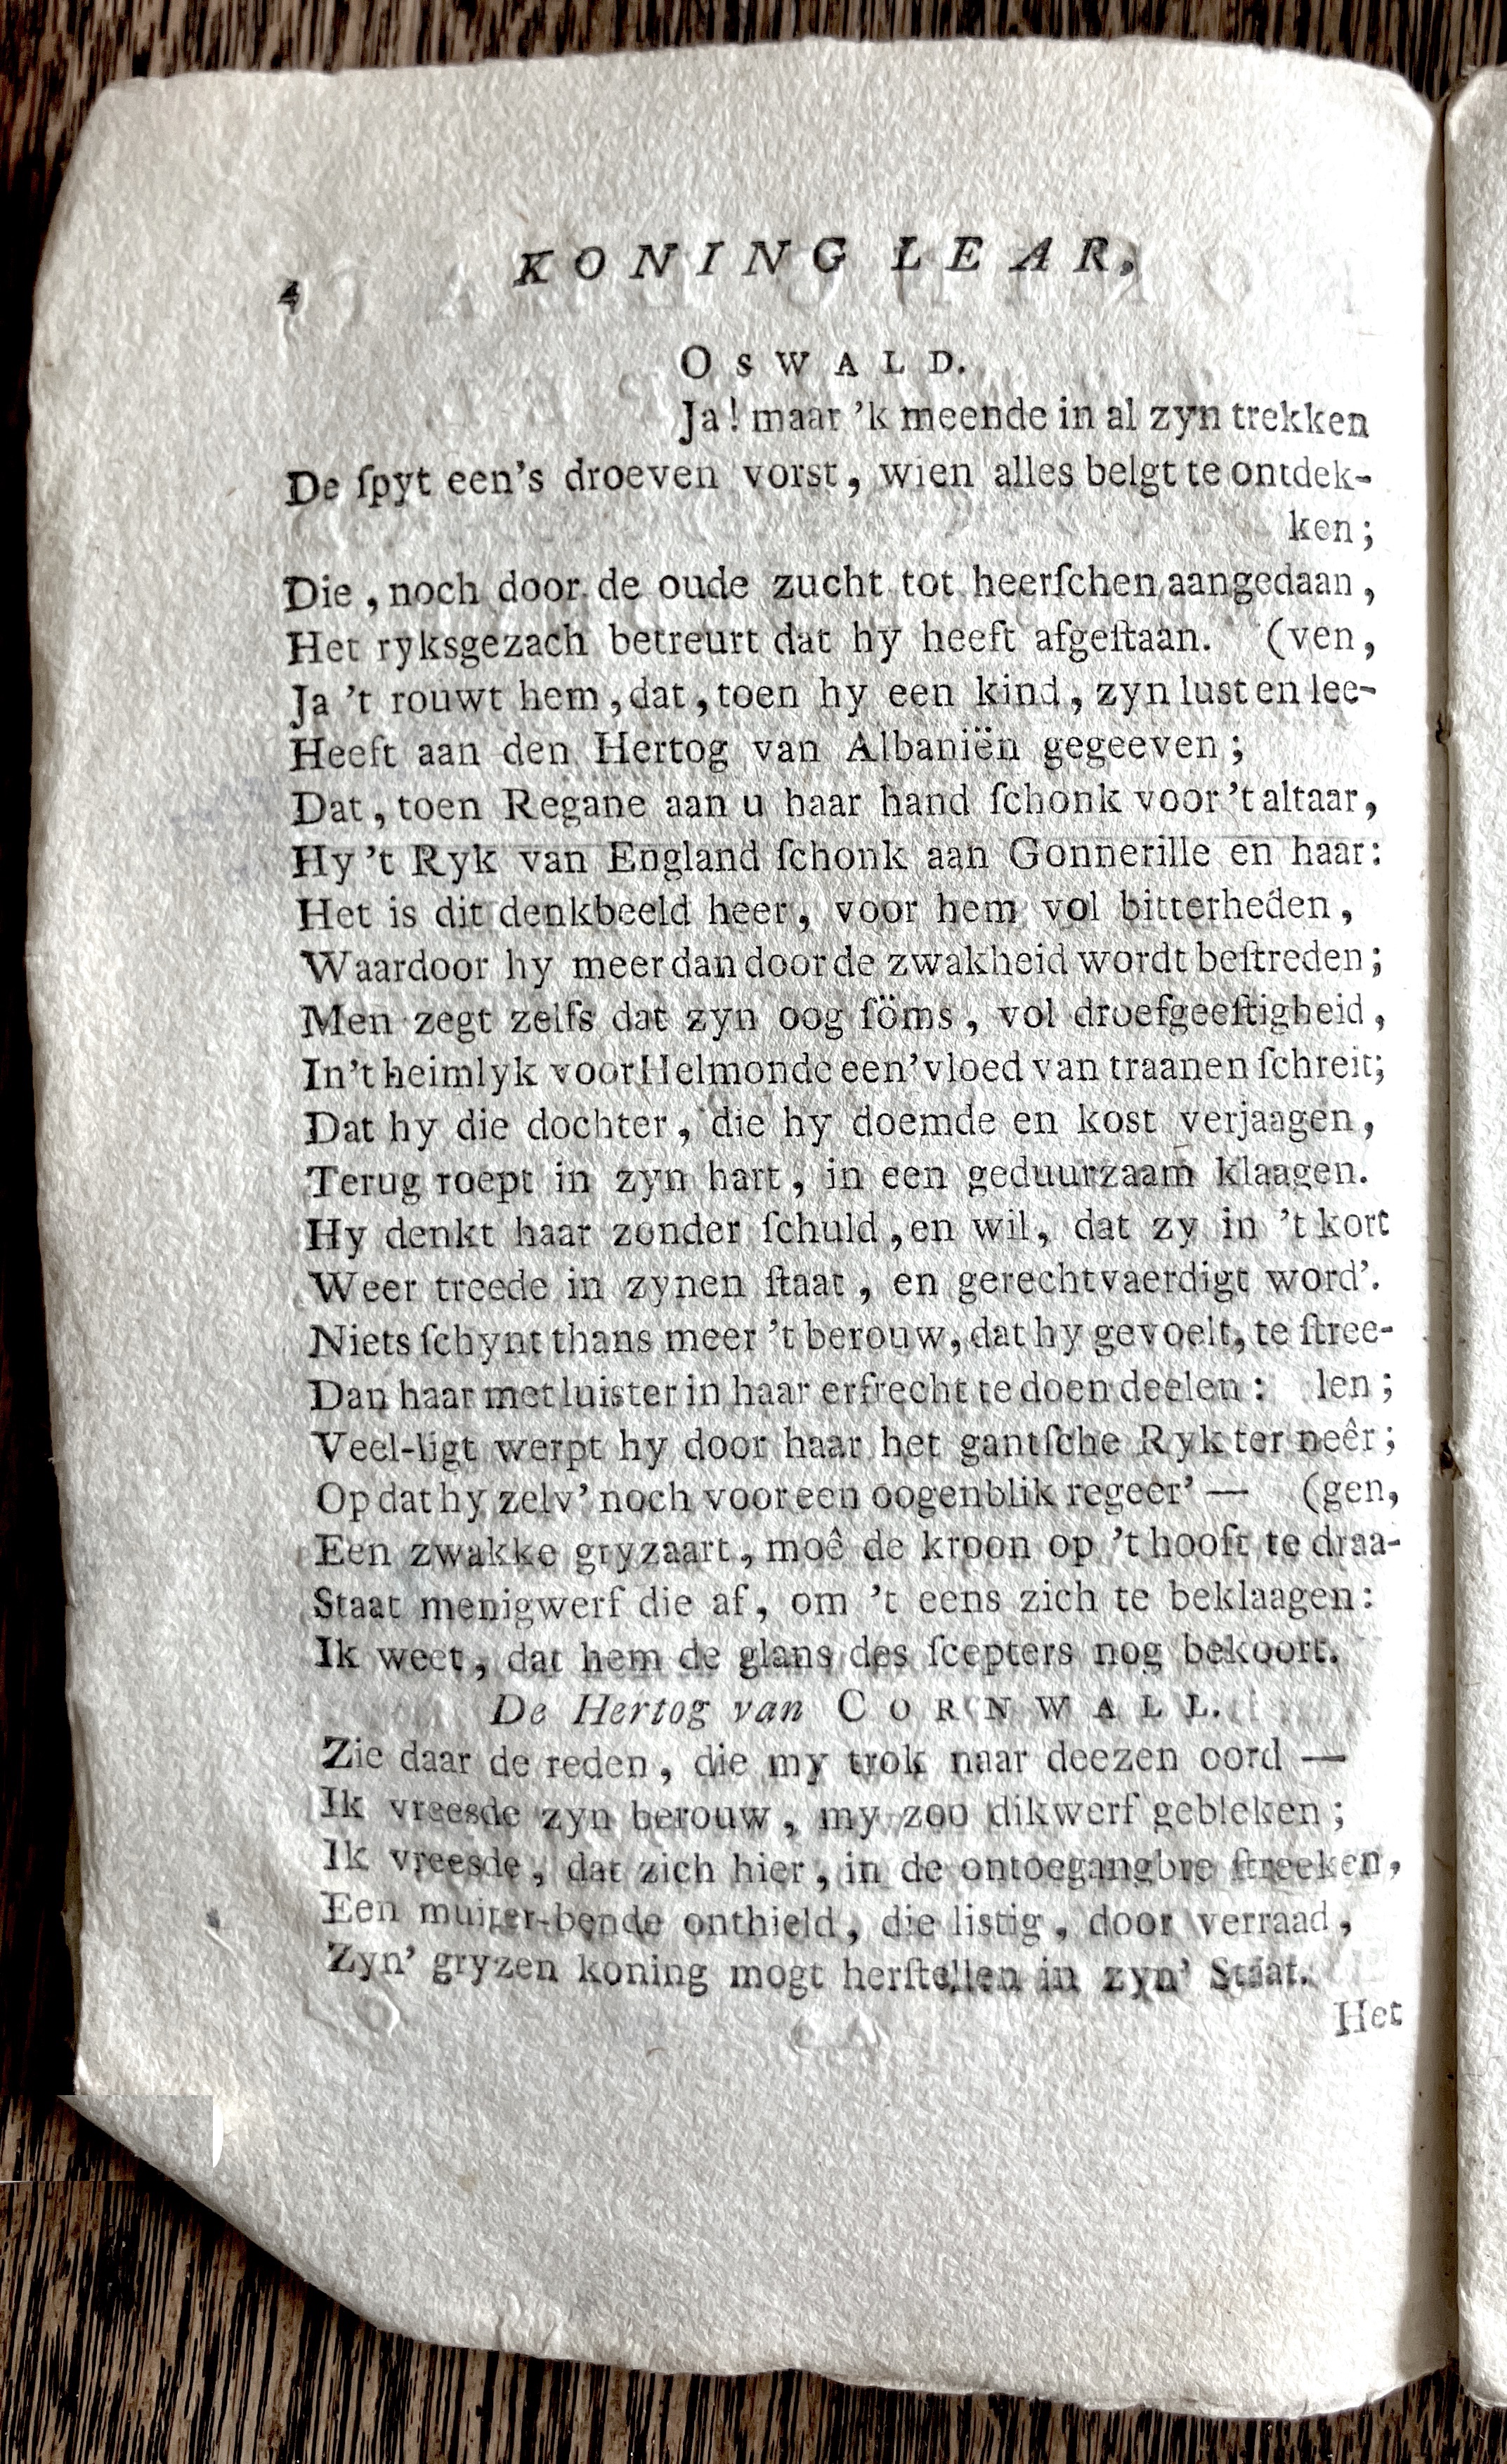 4 KONING LEAR,
OSWALD.
Ja! maar 'k meende in al zyn trekken
De ſpyt een's droeven vorst, wien alles belgt te ontdek-
ken;
Die, noch door de oude zucht tot heerſchen aangedaan,
Het ryksgezach betreurt dat hy heeft afgeſtaan. (ven,
Ja 't rouwt hem, dat, toen hy een kind, zyn lust en lee-
Heeft aan den Hertog van Albaniën gegeeven;
Dat, toen Regane aan u haar hand ſchonk voor 't altaar,
Hy 't Ryk van England ſchonk aan Gonnerille en haar:
Het is dit denkbeeld heer, voor hem vol bitterheden,
Waardoor hy meer dan door de zwakheid wordt beſtreden;
Men zegt zelfs dat zyn oog ſöms, vol droefgeeſtigheid,
In 't heimlyk voor Helmonde een' vloed van traanen ſchreit;
Dat hy die dochter, die hy doemde en kost verjaagen,
Terug roept in zyn hart, in een geduurzaam klaagen.
Hy denkt haar zonder ſchuld, en wil, dat zy in 't kort
Weer treede in zynen ſtaat, en gerechtvaerdigt word'.
Niets ſchynt thans meer 't berouw, dat hy gevoelt, te ſtree-
Dan haar met luister in haar erfrecht te doen deelen: len;
Veel-ligt werpt hy door haar het gantſche Ryk ter neêr;
Op dat hy zelv' noch voor een oogenblik regeer' — (gen,
Een zwakke gryzaart, moê de kroon op 't hooft te draa-
Staat menigwerf die af, om 't eens zich te beklaagen:
Ik weet, dat hem de glans des ſcepters nog bekoort.
De Hertog van CORNWALL.
Zie daar de reden, die my trok naar deezen oord —
Ik vreesde zyn berouw, my zoo dikwerf gebleken;
Ik vreesde, dat zich hier, in de ontoegangbre ſtreeken,
Een muiter-bende onthield, die listig, door verraad,
Zyn' gryzen koning mogt herſtellen in zyn' Staat.
Het